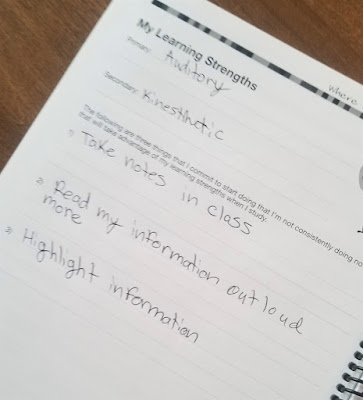 where
My Learning Strengths
Primary: Auditory
Secondary: Kinesthetic
The following are three things that I commit to start doing that I'm not consistently doing no
that will take advantage of my learning strengths when I study.
1) Take notes in class
2) Read my information outloud
more
3) Highlight information